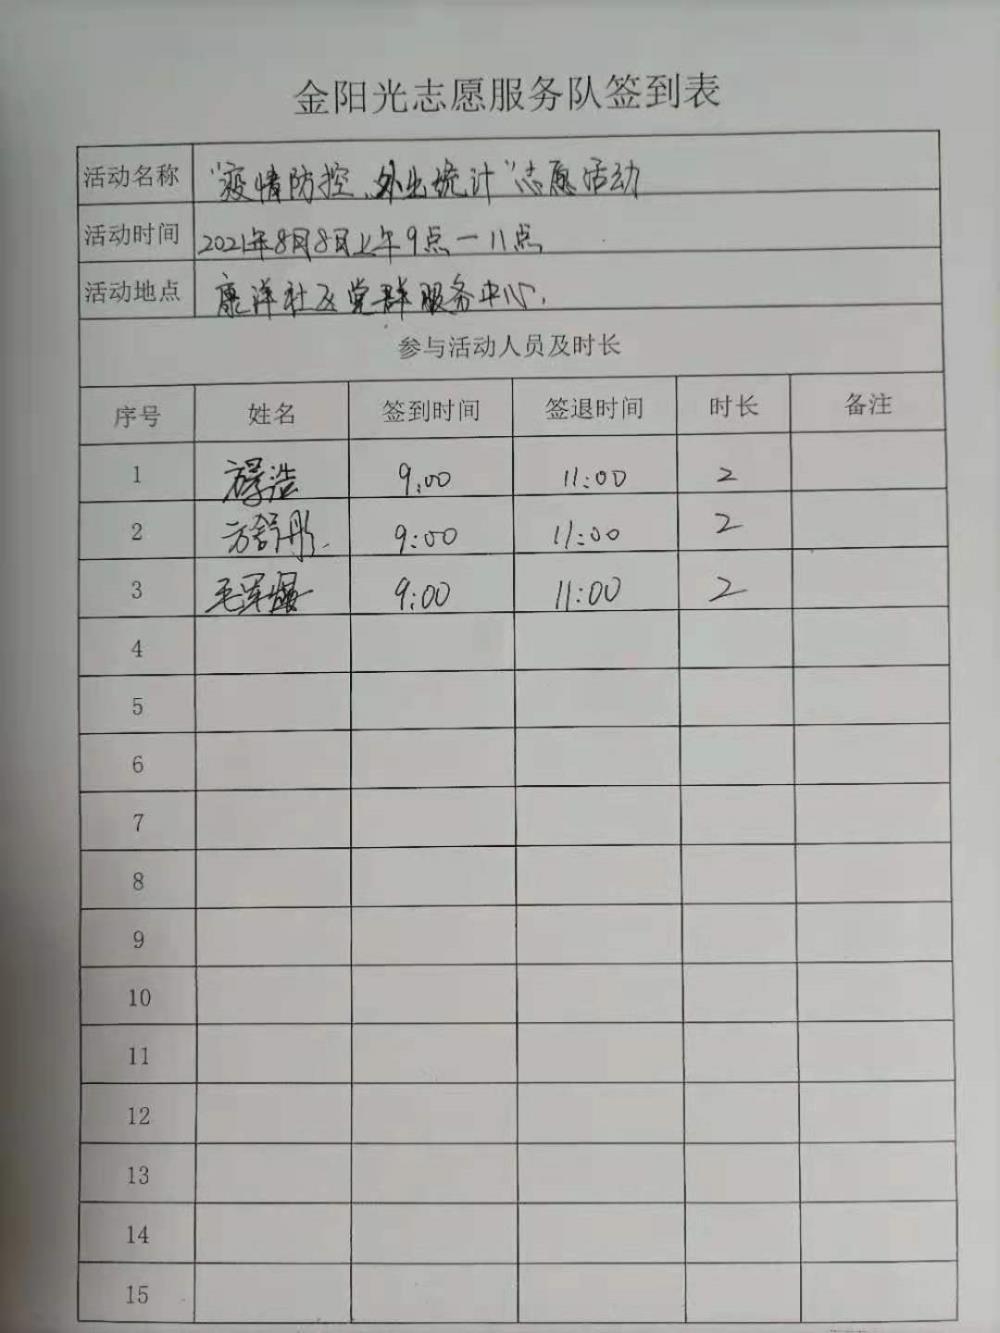 金阳光志愿服务队签到表
活动名称 “疫情防控、外出统计”志愿活动
活动时间 2021年8月8日上午9点一11点
活动地点 康洋社区党群服务中心.
参与活动人员及时长
序号 姓名 签到时间 签退时间 时长 备注
1 9:00 11:00 2
2 方舒彤 9:00 11:00 2
3 9:00 11:00 2
4
5
6
7
8
9
10
11
12
13
14
15